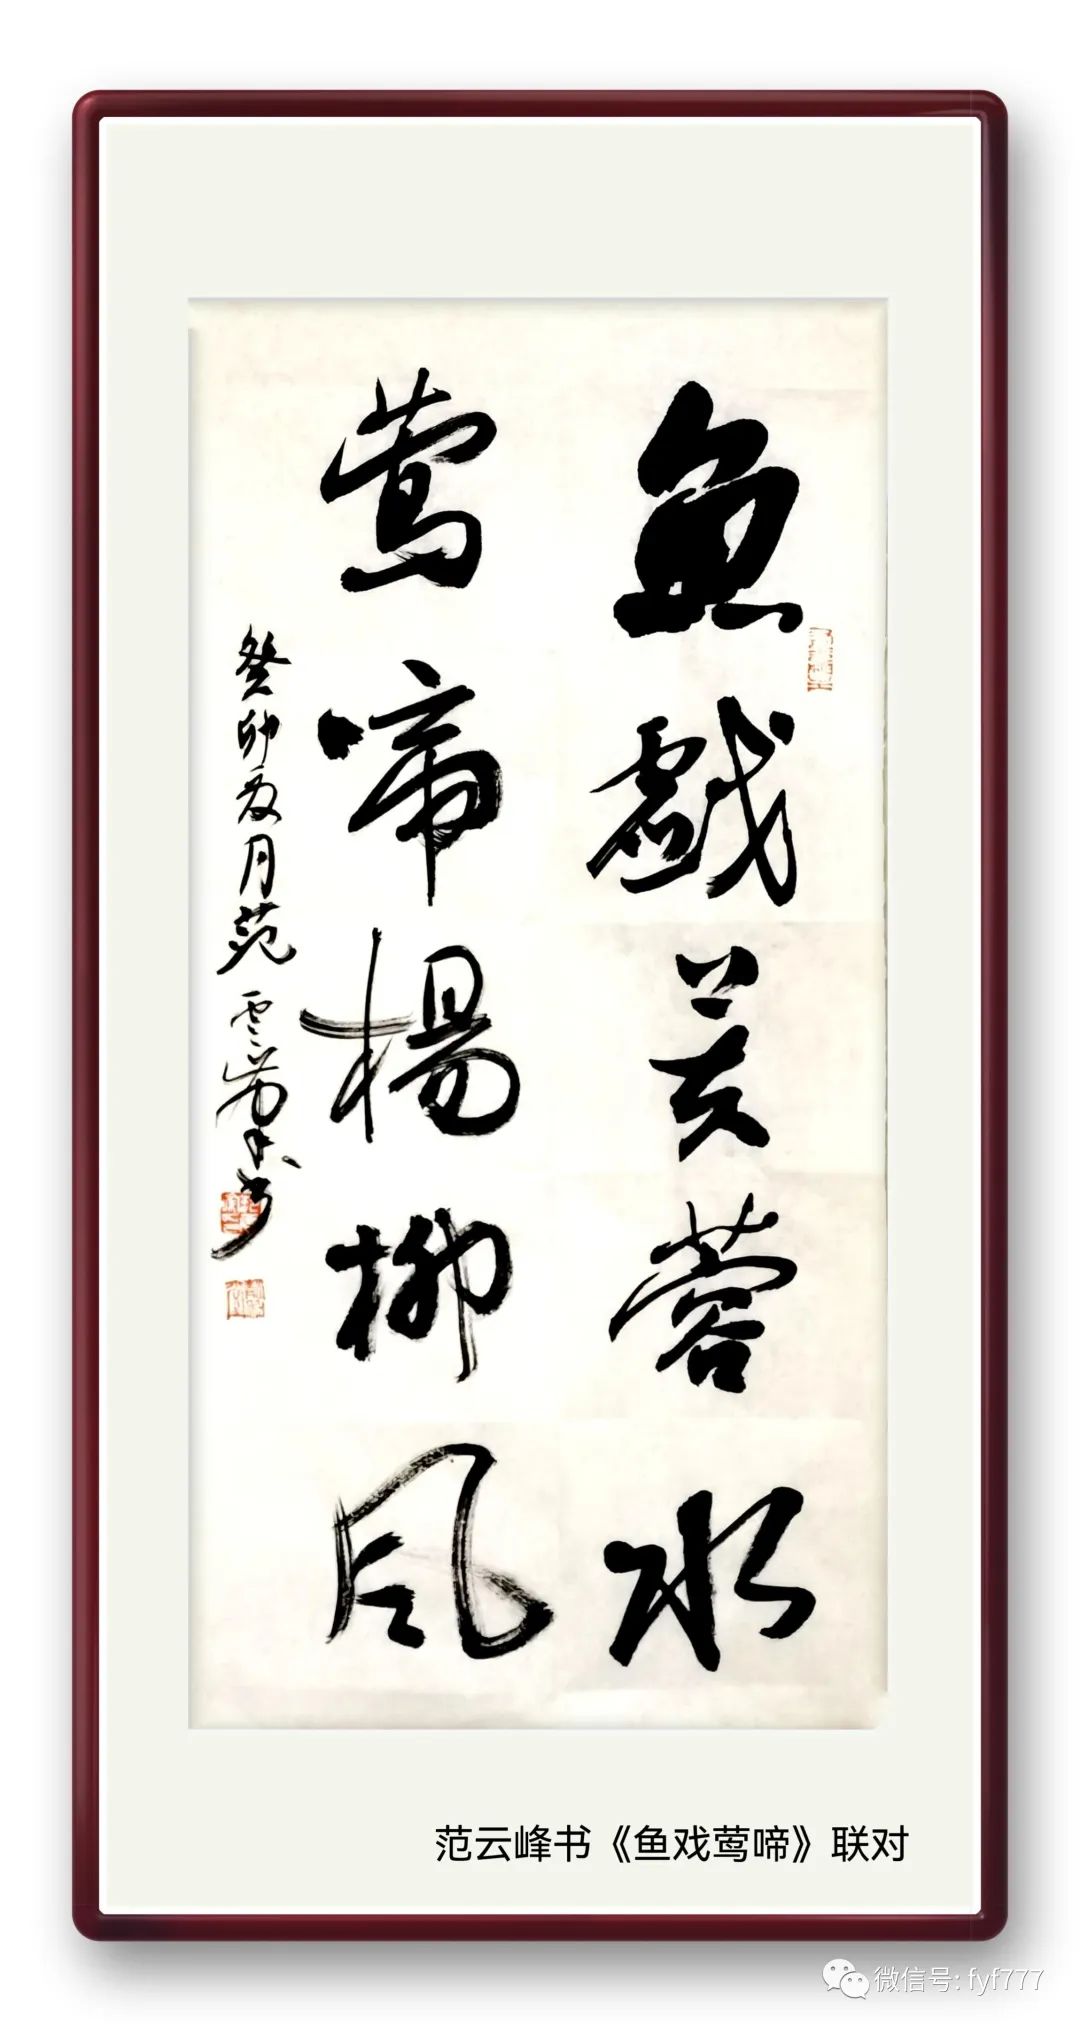 鱼戏芙蓉水
莺啼杨柳风
癸卯夏月范云峰书
范云峰书《鱼戏莺啼》联对
微信号: fyf777